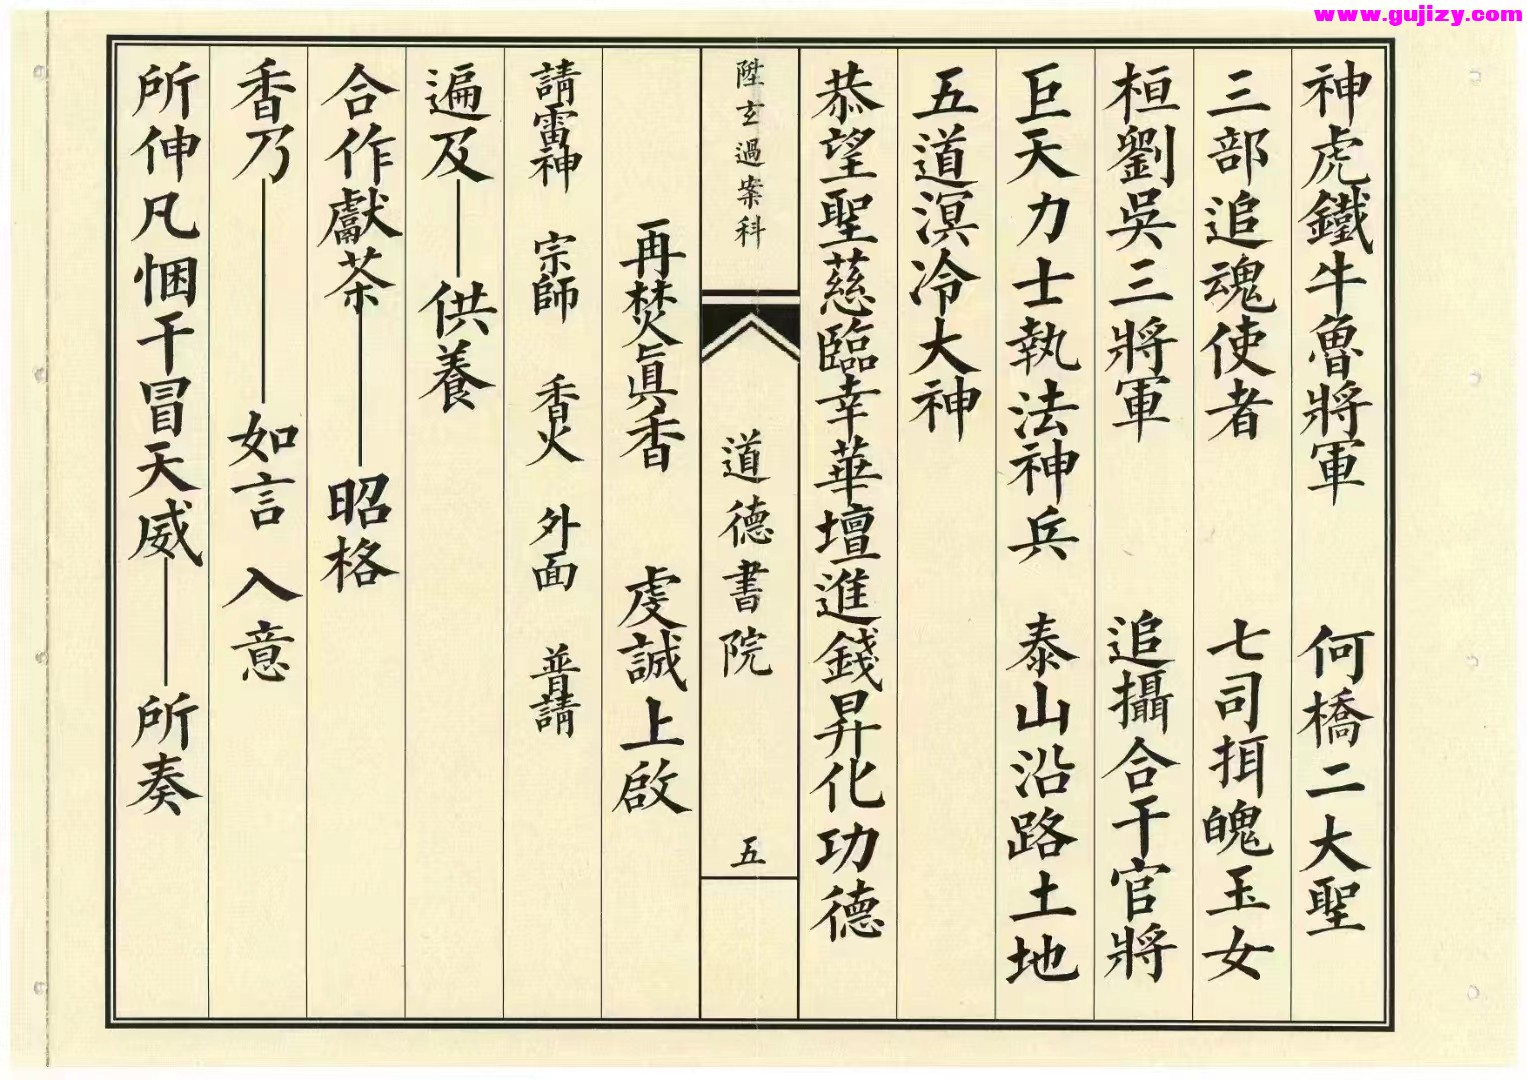 www.gujizy.com
神虎鐵牛魯將軍　何橋二大聖
三部追魂使者　七司挕魄玉女
桓劉吳三將軍　追攝合干官將
巨天力士執法神兵　泰山沿路土地
五道溟冷大神
恭望聖慈臨幸華壇進錢昇化功德
陞玄過案科　道德書院　五
再焚眞香　虔誠上啟
請雷神　宗師　香火　外面　普請
遍及——供養
合作獻茶——昭格
香乃——如言　入意
所伸凡悃干冒天威——所奏